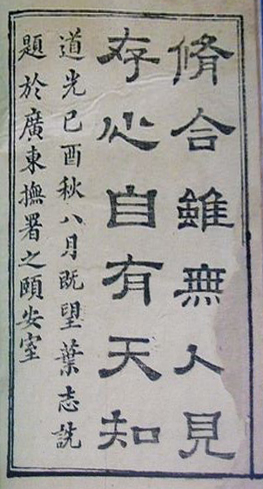 脩合雖無人見
存心自有天知
道光已酉秋八月既望葉志詵
題於廣東撫署之頤安室